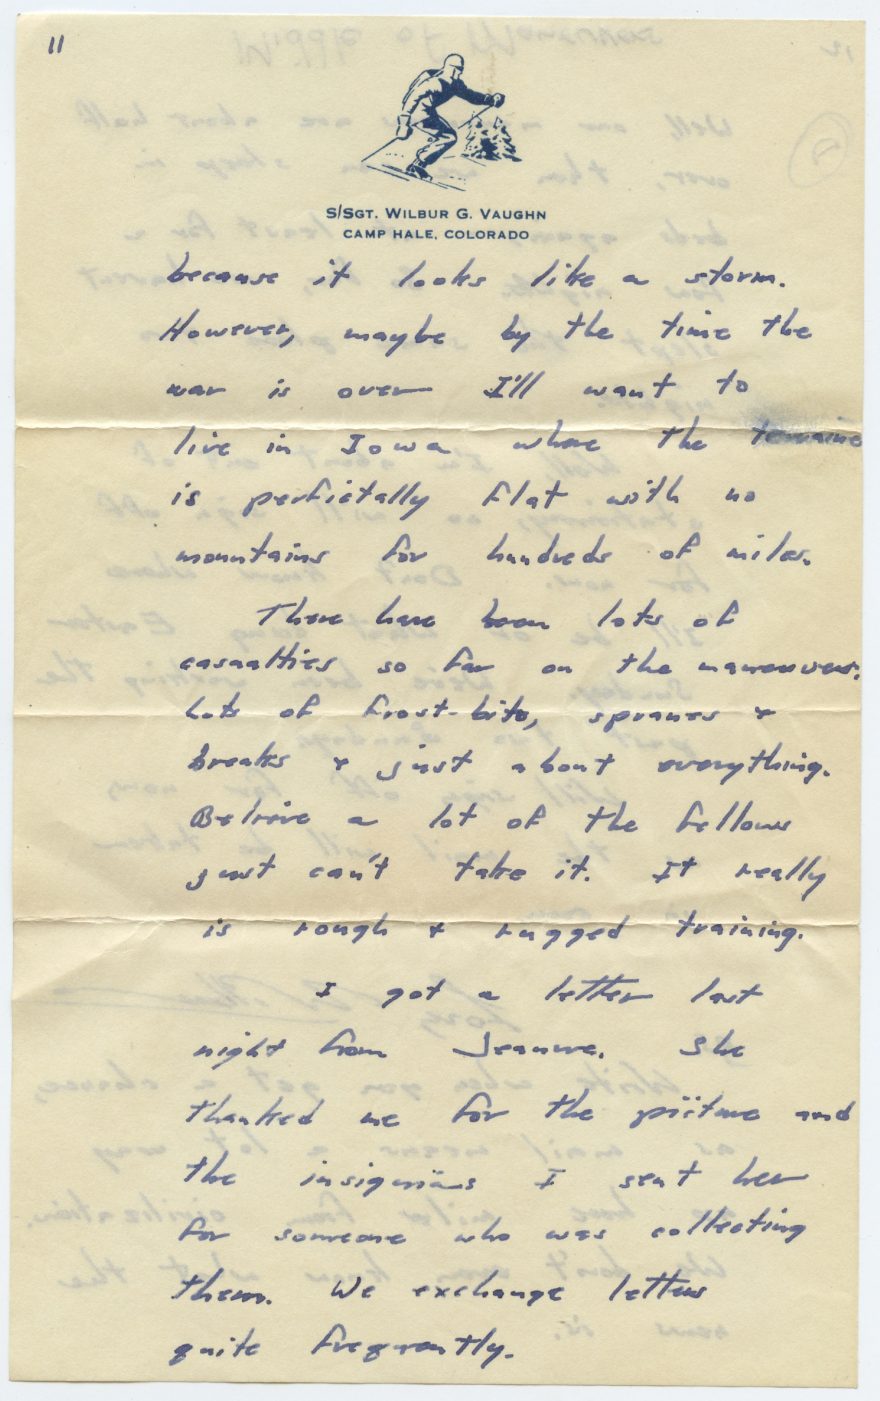 11
S/SGT. WILBUR G. VAUGHN
CAMP HALE, COLORADO
because it looks like a storm.
However, maybe by the time the
war is over I'll want to
live in Iowa where the terraine
is perfictally flat with no
mountains for hundreds of miles.
There have been lots of
casaalties so far on the maneuvers.
Lots of frost-bite, spranes +
breaks + just about everything.
Belreive a lot of the fellows
just can't take it. It really
is rough + rugged training.
I got a letter last
night from Jeanne. She
thanked me for the picture and
the insignias I sent her
for someone who was collecting
them. We exchange letters
quite freqrantly.